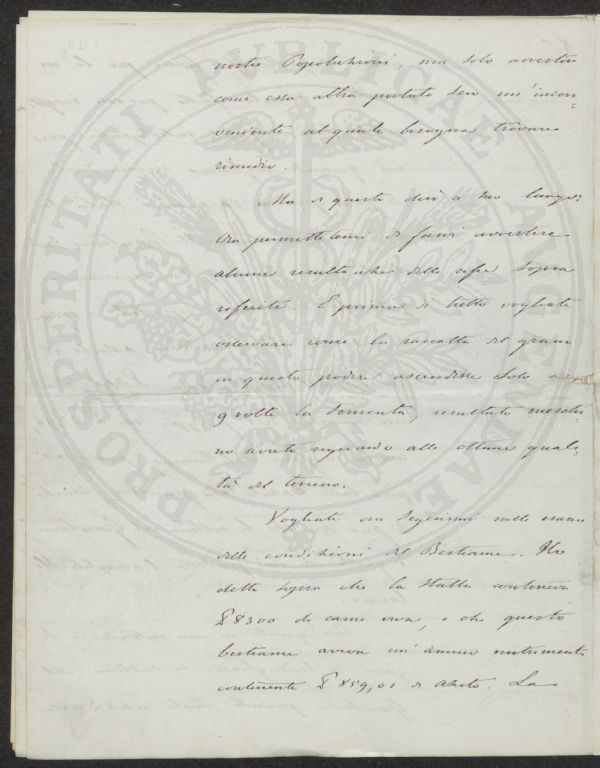 nostre Popolazioni, ma solo avvertire
come essa abbia portato seco un' incon-
veniente al quale bisogna trovare
rimedio.
Ma di questo dirò a suo luogo:
Ora permettetemi di farvi avvertire
alcune resultanze delle cifre sopra
referite. E prima di tutto vogliate
osservare come la raccolta del grano
in questo podere ascendesse solo a
9 volte la sementa, resultato meschi-
no avuto riguardo alle ottime quali-
tà del terreno.
Vogliate ora seguirmi nello esame
delle condizioni del Bestiame. Ho
detto sopra che la stalla conteneva
£ 8300 di carne viva, e che questo
bestiame aveva un' annuo nutrimento
contenente £ 859,01 di Azoto. La
PROSPERITATI PVBLICAE AVGENDAE